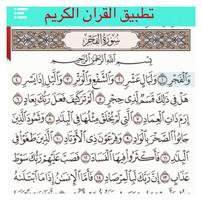 تطبيق القران الكريم
سُورَةُ الفَجْرِ
بِسْمِ اللَّهِ الرَّحْمَٰنِ الرَّحِيمِ
وَالْفَجْرِ ١ وَلَيَالٍ عَشْرٍ ٢ وَالشَّفْعِ وَالْوَتْرِ ٣ وَاللَّيْلِ إِذَا يَسْرِ ٤
هَلْ فِي ذَٰلِكَ قَسَمٌ لِّذِي حِجْرٍ ٥ أَلَمْ تَرَ كَيْفَ فَعَلَ رَبُّكَ بِعَادٍ ٦
إِرَمَ ذَاتِ الْعِمَادِ ٧ الَّتِي لَمْ يُخْلَقْ مِثْلُهَا فِي الْبِلَادِ ٨ وَثَمُودَ الَّذِينَ
جَابُوا الصَّخْرَ بِالْوَادِ ٩ وَفِرْعَوْنَ ذِي الْأَوْتَادِ ١٠ الَّذِينَ طَغَوْا فِي
الْبِلَادِ ١١ فَأَكْثَرُوا فِيهَا الْفَسَادَ ١٢ فَصَبَّ عَلَيْهِمْ رَبُّكَ سَوْطَ
عَذَابٍ ١٣ إِنَّ رَبَّكَ لَبِالْمِرْصَادِ ١٤ فَأَمَّا الْإِنسَانُ إِذَا مَا ابْتَلَاهُ